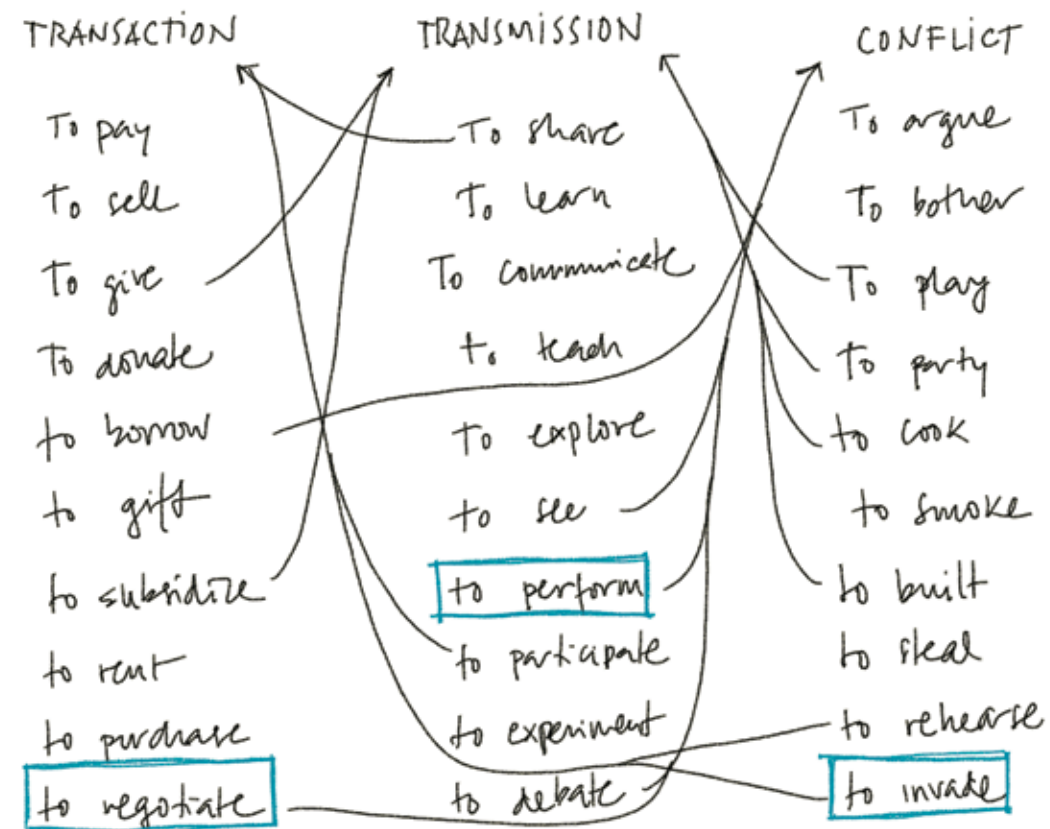 TRANSACTION
To pay
To sell
To give
To donate
to borrow
to gift
to subsidize
to rent
to purchase
to negotiate
TRANSMISSION
To share
To learn
To communicate
to teach
To explore
to see
to perform
to participate
to experiment
to debate
CONFLICT
To argue
To bother
To play
to party
to cook
to smoke
to built
to steal
to rehearse
to invade